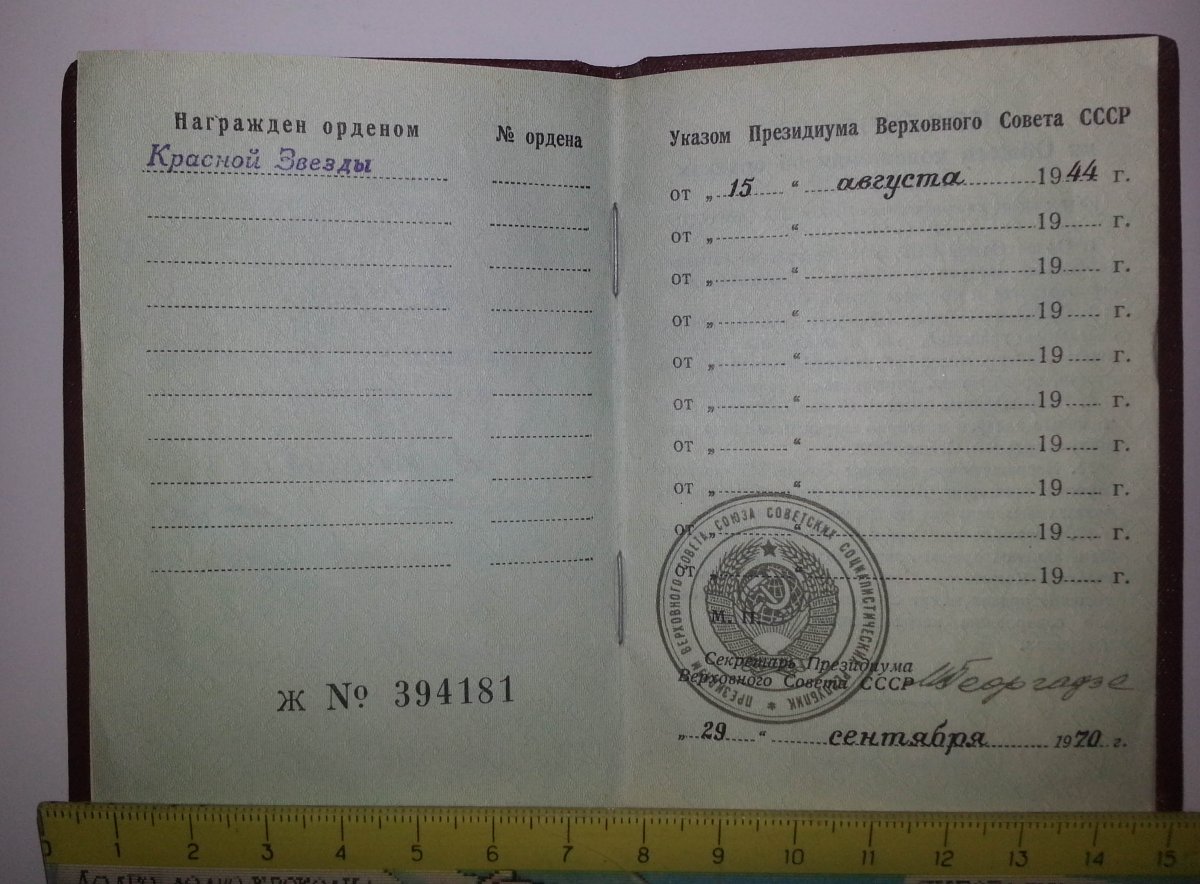 Награжден орденом
№ ордена
Красной Звезды
Ж № 394181
Указом Президиума Верховного Совета СССР
от „15“ августа 1944 г.
от „ “ 19 г.
от „ “ 19 г.
от „ “ 19 г.
от „ “ 19 г.
от „ “ 19 г.
от „ “ 19 г.
от „ “ 19 г.
от „ “ 19 г.
от „ “ 19 г.
М. П.
ПРЕЗИДИУМ ВЕРХОВНОГО СОВЕТА СОЮЗА СОВЕТСКИХ СОЦИАЛИСТИЧЕСКИХ РЕСПУБЛИК
Секретарь Президиума
Верховного Совета СССР
МГеоргадзе
„29“ сентября 1970 г.
0 1 2 3 4 5 6 7 8 9 10 11 12 13 14 15